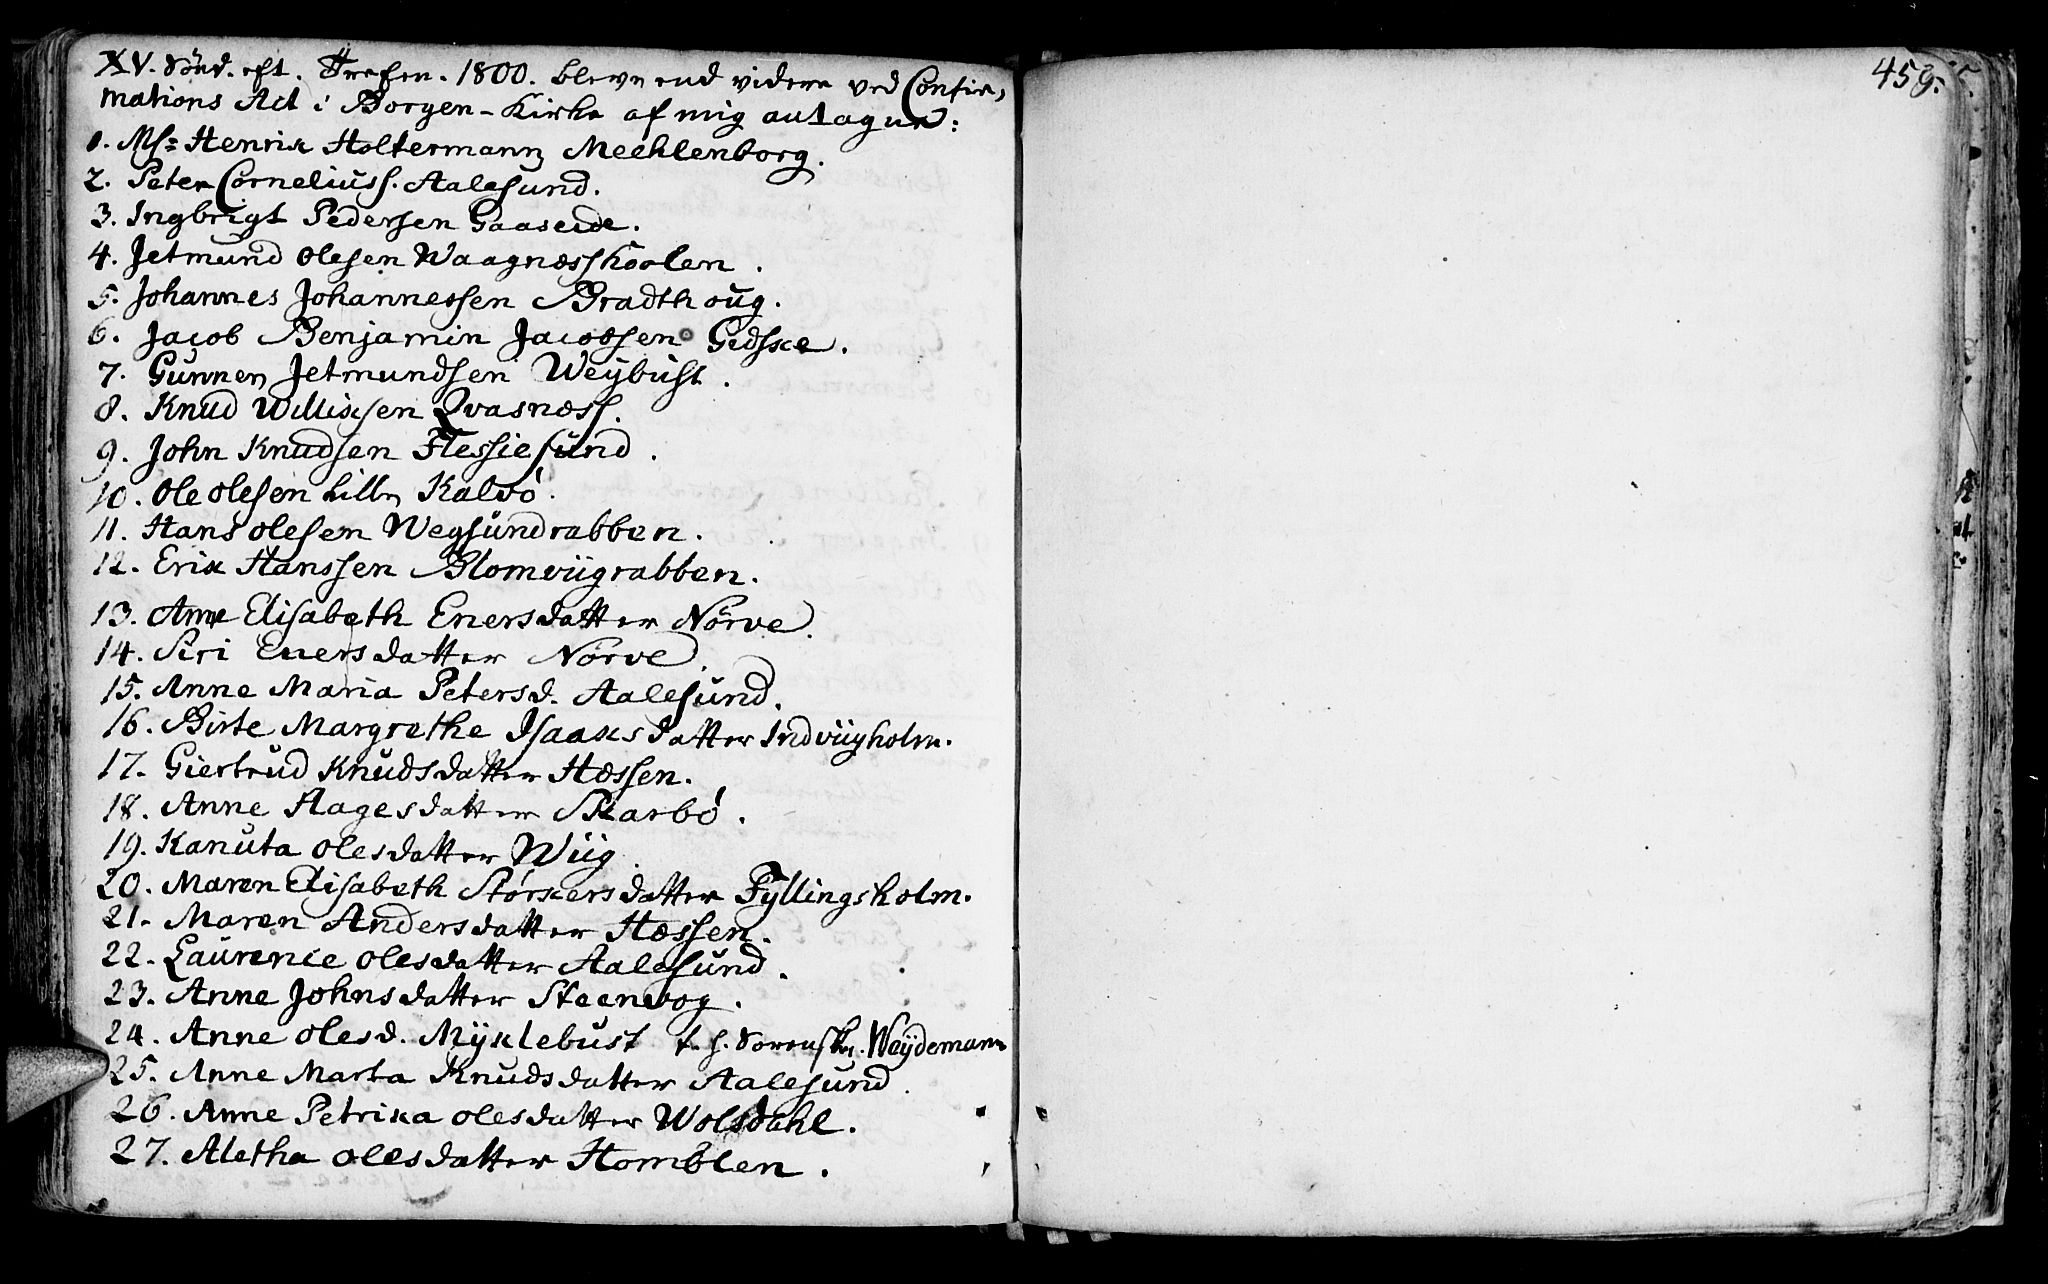 XV. Sönd. eft. Trefen. 1800. bleve end videre ved Confir-
mations Act i Borgen-Kirke af mig antagne:
1. Ms: Henrik Holtermann Mechlenborg.
2. Peter Corneliuss. Aalesund.
3. Ingbrigt Pedersen Gaaseide.
4. Jetmund Olesen Waagnæsskoolen.
5. Johannes Johannessen Bradthoug.
6. Jacob Benjamin Jacobsen Gidske.
7. Gunner Jetmundsen Weybust.
8. Knud Willixsen Qvasnæss.
9. John Knudsen Flessiesund.
10. Ole Olesen Lille Kalvö.
11. Hans Olesen Wegsundrabben.
12. Erik Hanssen Blomviigrabben.
13. Anne Elisabeth Enersdatter Nörve.
14. Siri Enersdatter Nörve.
15. Anne Maria Petersd. Aalesund.
16. Birte Margrethe Isaaksdatter Indviigholm.
17. Giertrud Knudsdatter Hæssen.
18. Anne Aagesdatter Skarbö.
19. Kanuta Olesdatter Wiig.
20. Maren Elisabeth Störkersdatter Fyllingsholm.
21. Maren Andersdatter Hæssen.
22. Laurence Olesdatter Aalesund.
23. Anne Johnsdatter Steenvog.
24. Anne Olesd. Myklebust t. h. Sorenskr. Weydemann
25. Anne Marta Knudsdatter Aalesund.
26. Anne Petrika Olesdatter Wolsdahl.
27. Aletha Olesdatter Homblen.
459.